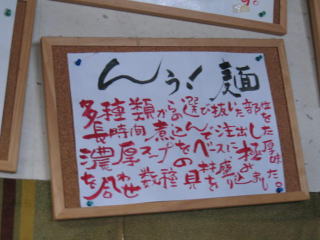 んぅ!麺
多種類からの選び抜いた部位を
長時間煮込んで注出した
濃厚スープをベースに極
を合わせ数種の具材を盛り込みました。